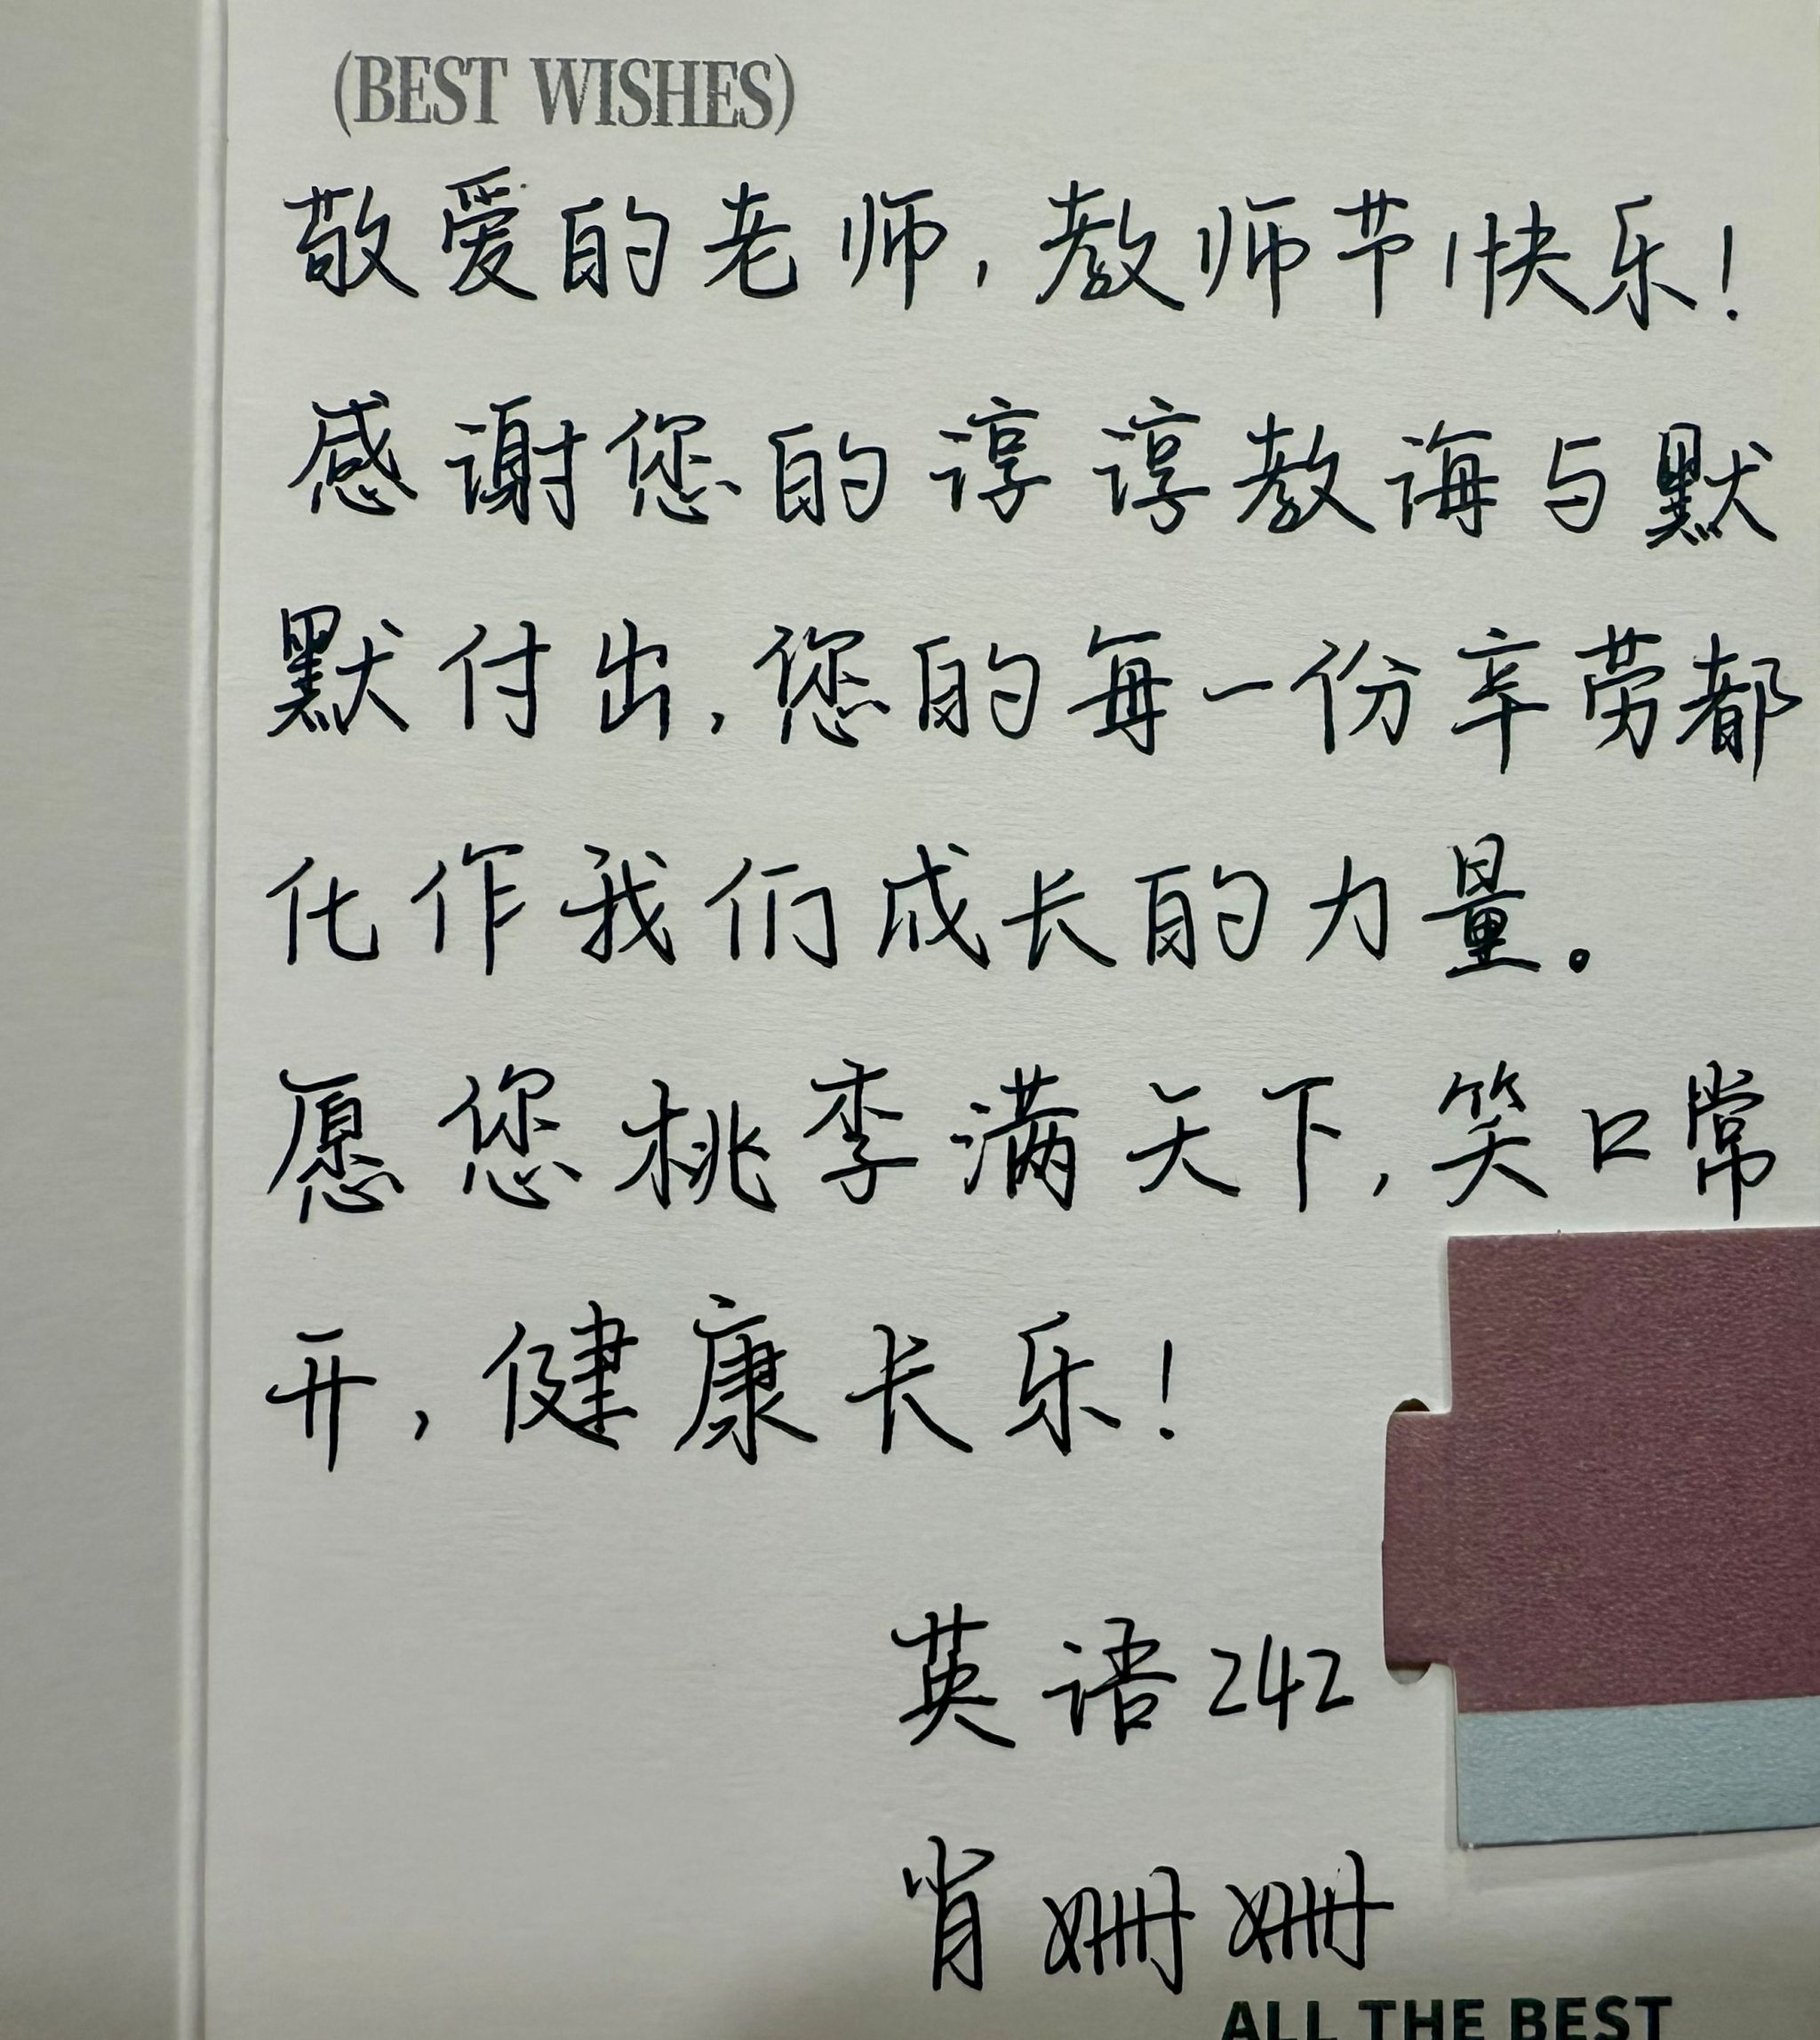 (BEST WISHES)
敬爱的老师,教师节快乐!
感谢您的谆谆教诲与默
默付出,您的每一份辛劳都
化作我们成长的力量。
愿您桃李满天下,笑口常
开,健康长乐!
英语242
肖姗姗
ALL THE BEST